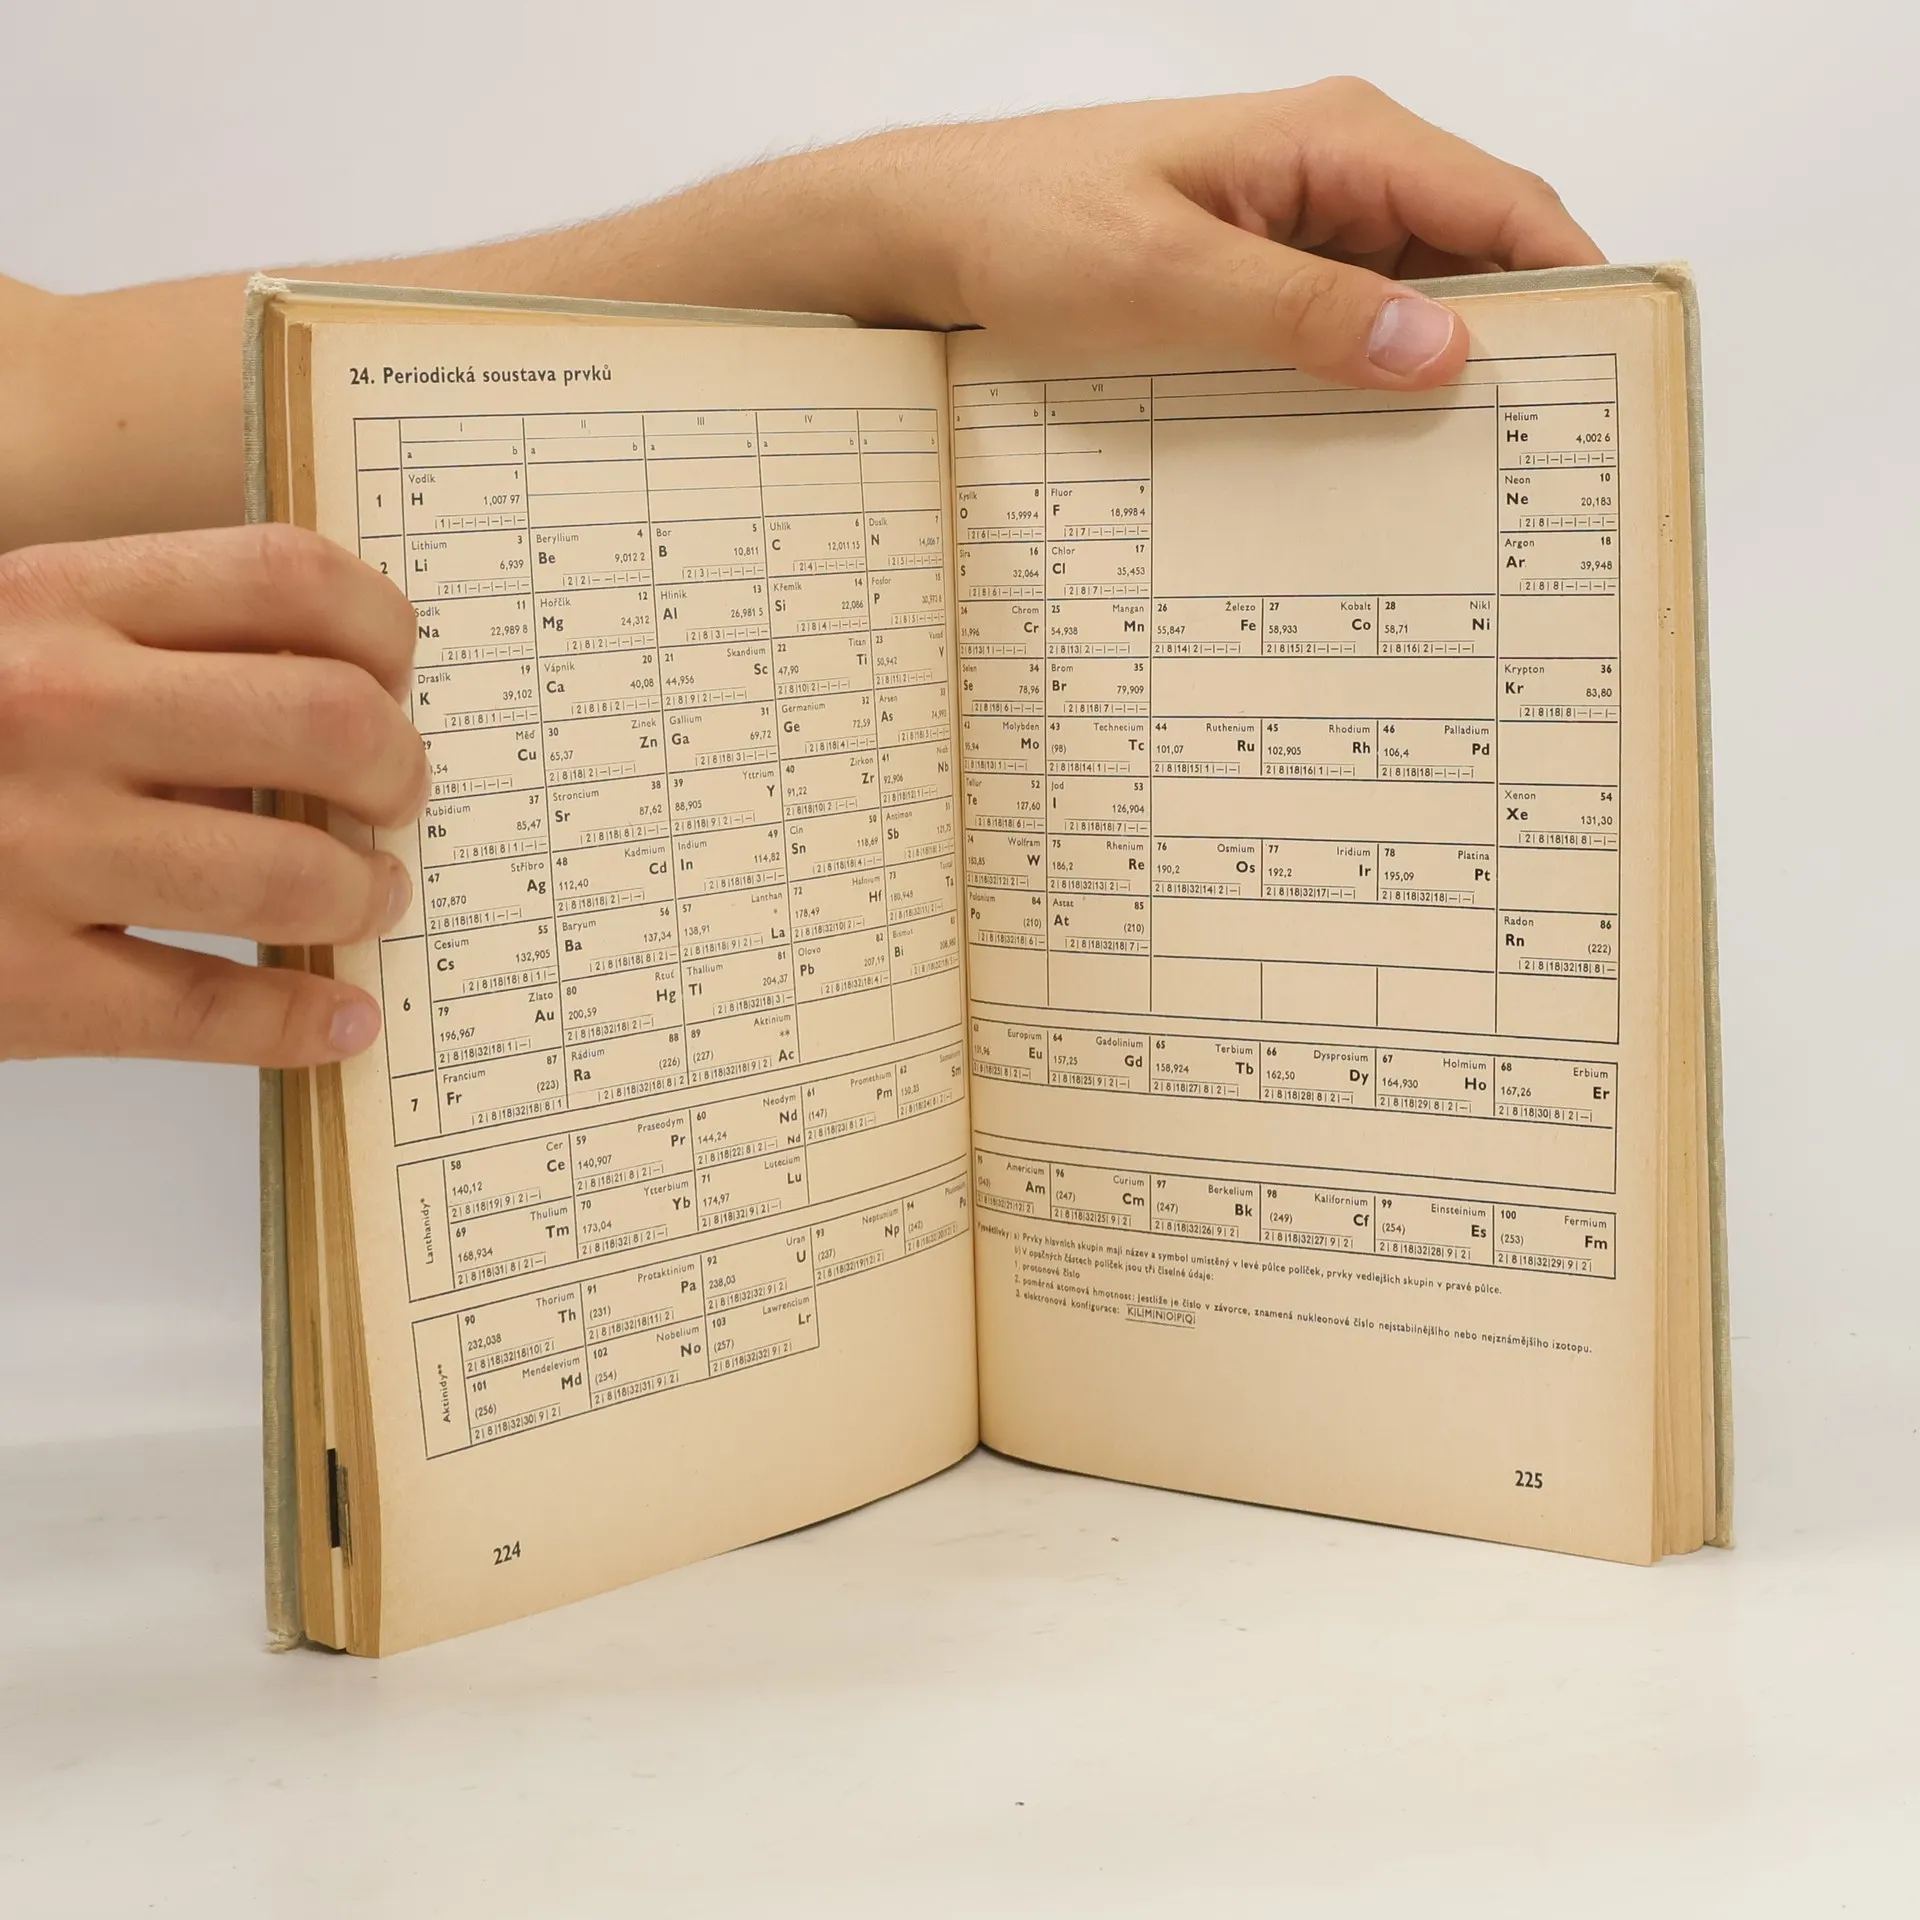 24. Periodická soustava prvků
I II III IV V
a b a b a b a b a b
1
Vodík 1
H 1,007 97
|1|—|—|—|—|—|
2
Lithium 3 Beryllium 4 Bor 5 Uhlík 6 Dusík 7
Li 6,939 Be 9,012 2 B 10,811 C 12,011 15 N 14,006 7
|2|1|—|—|—|—| |2|2|—|—|—|—| |2|3|—|—|—|—| |2|4|—|—|—|—| |2|5|—|—|—|—|
Sodík 11 Hořčík 12 Hliník 13 Křemík 14 Fosfor 15
Na 22,989 8 Mg 24,312 Al 26,981 5 Si 22,086 P
|2|8|1|—|—|—| |2|8|2|—|—|—| |2|8|3|—|—|—| |2|8|4|—|—|—| |2|8|5|—|—|—|
Draslík 19 Vápník 20 21 Skandium 22 Titan 23 Vanad
K 39,102 Ca 40,08 44,956 Sc 47,90 Ti 50,942 V
|2|8|8|1|—|—| |2|8|8|2|—|—| 2|8|9|2|—|—|—| 2|8|10|2|—|—|—| 2|8|11|2|—|—|—|
29 Měď 30 Zinek Gallium 31 Germanium 32 Arsen 33
,54 Cu 65,37 Zn Ga 69,72 Ge 72,59 As
8|18|1|—|—|—| 2|8|18|2|—|—|—| |2|8|18|3|—|—| |2|8|18|4|—|—| |2|8|18|5|—|—|
Rubidium 37 Stroncium 38 39 Yttrium 40 Zirkon 41 Niob
Rb 85,47 Sr 87,62 88,905 Y 91,22 Zr 92,906 Nb
|2|8|18|8|1|—| |2|8|18|8|2|—| 2|8|18|9|2|—|—| 2|8|18|10|2|—|—| 2|8|18|12|1|—|—|
47 Stříbro 48 Kadmium Indium 49 Cín 50 Antimon 51
107,870 Ag 112,40 Cd In 114,82 Sn 118,69 Sb 121,75
2|8|18|18|1|—|—| 2|8|18|18|2|—|—| |2|8|18|18|3|—| |2|8|18|18|4|—| |2|8|18|18|5|—|
6
Cesium 55 Baryum 56 57 Lanthan 72 Hafnium 73 Tantal
Cs 132,905 Ba 137,34 138,91 * La 178,49 Hf 180,948 Ta
|2|8|18|18|8|1|— |2|8|18|18|8|2|— 2|8|18|18|9|2|—| 2|8|18|32|10|2|—| 2|8|18|32|11|2|—|
79 Zlato 80 Rtuť Thallium 81 Olovo 82 Bismut 83
196,967 Au 200,59 Hg Tl 204,37 Pb 207,19 Bi 208,980
2|8|18|32|18|1|—| 2|8|18|32|18|2|—| |2|8|18|32|18|3|— |2|8|18|32|18|4|— |2|8|18|32|18|5|—
7
Francium 87 Rádium 88 89 Aktinium
Fr (223) Ra (226) (227) ** Ac
|2|8|18|32|18|8|1 |2|8|18|32|18|8|2 2|8|18|32|18|9|2|
Lanthanidy*
58 Cer 59 Praseodym 60 Neodym 61 Promethium 62 Samarium
140,12 Ce 140,907 Pr 144,24 Nd (147) Pm 150,35 Sm
2|8|18|19|9|2|—| 2|8|18|21|8|2|—| 2|8|18|22|8|2|—| Nd 2|8|18|23|8|2|—| 2|8|18|24|8|2|—|
69 Thulium 70 Ytterbium 71 Lutecium
168,934 Tm 173,04 Yb 174,97 Lu
2|8|18|31|8|2|—| 2|8|18|32|8|2|—| 2|8|18|32|9|2|—|
Aktinidy**
90 Thorium 91 Protaktinium 92 Uran 93 Neptunium 94 Plutonium
232,038 Th (231) Pa 238,03 U (237) Np (242) Pu
2|8|18|32|18|10|2| 2|8|18|32|18|11|2| 2|8|18|32|32|9|2| 2|8|18|32|19|12|2|
101 Mendelevium 102 Nobelium 103 Lawrencium
(256) Md (254) No (257) Lr
2|8|18|32|30|9|2| 2|8|18|32|31|9|2| 2|8|18|32|32|9|2|
224
VI VII
a b a b
Helium 2
He 4,002 6
|2|—|—|—|—|—|
Kyslík 8 Fluor 9 Neon 10
O 15,999 4 F 18,998 4 Ne 20,183
|2|6|—|—|—|—| |2|7|—|—|—|—| |2|8|—|—|—|—|
Síra 16 Chlor 17 Argon 18
S 32,064 Cl 35,453 Ar 39,948
|2|8|6|—|—|—| |2|8|7|—|—|—| |2|8|8|—|—|—|
24 Chrom 25 Mangan 26 Železo 27 Kobalt 28 Nikl
51,996 Cr 54,938 Mn 55,847 Fe 58,933 Co 58,71 Ni
2|8|13|1|—|—|—| 2|8|13|2|—|—|—| 2|8|14|2|—|—|—| 2|8|15|2|—|—|—| 2|8|16|2|—|—|—|
Selen 34 Brom 35 Krypton 36
Se 78,96 Br 79,909 Kr 83,80
|2|8|18|6|—|—| |2|8|18|7|—|—| |2|8|18|8|—|—|
42 Molybden 43 Technecium 44 Ruthenium 45 Rhodium 46 Palladium
95,94 Mo (98) Tc 101,07 Ru 102,905 Rh 106,4 Pd
2|8|18|13|1|—|—| 2|8|18|14|1|—|—| 2|8|18|15|1|—|—| 2|8|18|16|1|—|—| 2|8|18|18|—|—|—|
Tellur 52 Jod 53 Xenon 54
Te 127,60 I 126,904 Xe 131,30
|2|8|18|18|6|—| |2|8|18|18|7|—| |2|8|18|18|8|—|
74 Wolfram 75 Rhenium 76 Osmium 77 Iridium 78 Platina
183,85 W 186,2 Re 190,2 Os 192,2 Ir 195,09 Pt
2|8|18|32|12|2|—| 2|8|18|32|13|2|—| 2|8|18|32|14|2|—| 2|8|18|32|17|—|—| 2|8|18|32|18|—|
Polonium 84 Astat 85 Radon 86
Po (210) At (210) Rn (222)
|2|8|18|32|18|6|— |2|8|18|32|18|7|— |2|8|18|32|18|8|—
63 Europium 64 Gadolinium 65 Terbium 66 Dysprosium 67 Holmium 68 Erbium
151,96 Eu 157,25 Gd 158,924 Tb 162,50 Dy 164,930 Ho 167,26 Er
2|8|18|25|8|2|—| 2|8|18|25|9|2|—| 2|8|18|27|8|2|—| 2|8|18|28|8|2|—| 2|8|18|29|8|2|—| 2|8|18|30|8|2|—|
95 Americium 96 Curium 97 Berkelium 98 Kalifornium 99 Einsteinium 100 Fermium
(243) Am (247) Cm (247) Bk (249) Cf (254) Es (253) Fm
2|8|18|32|25|9|2| 2|8|18|32|26|9|2| 2|8|18|32|27|9|2| 2|8|18|32|28|9|2| 2|8|18|32|29|9|2|
Vysvětlivky: a) Prvky hlavních skupin mají název a symbol umístěný v levé půlce políček, prvky vedlejších skupin v pravé půlce.
b) V opačných částech políček jsou tři číselné údaje:
1. protonové číslo
2. poměrná atomová hmotnost; jestliže je číslo v závorce, znamená nukleonové číslo nejstabilnějšího nebo nejznámějšího izotopu.
3. elektronová konfigurace: K|L|M|N|O|P|Q|
225